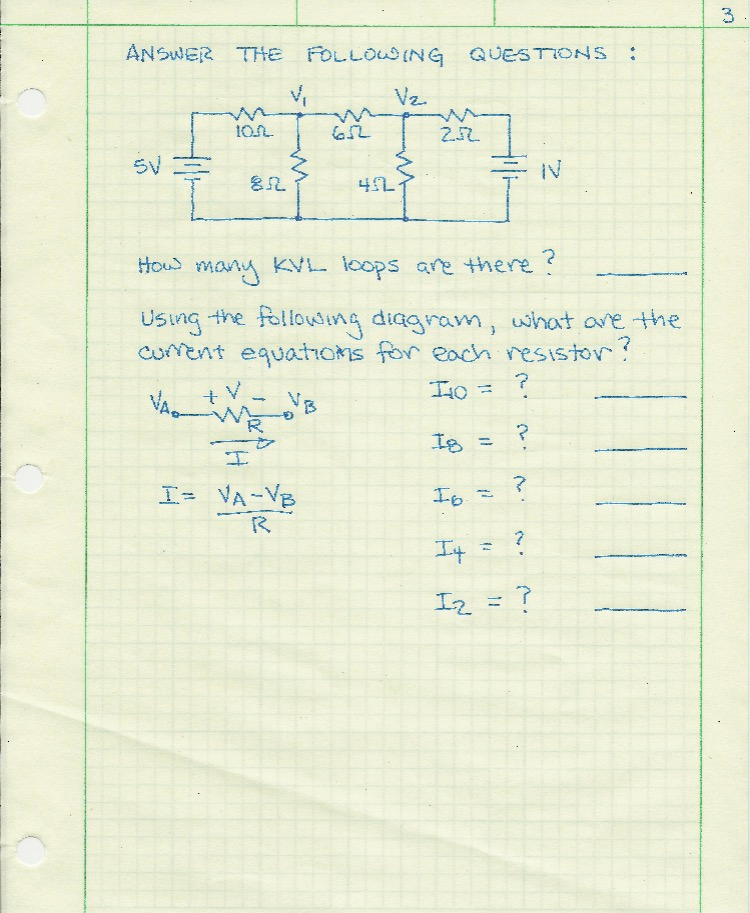 3
ANSWER THE FOLLOWING QUESTIONS :
V1 V2
10Ω 6Ω 2Ω
5V 8Ω 4Ω 1V
How many KVL loops are there?
Using the following diagram, what are the
current equations for each resistor?
VA + V - VB
R
I
I = VA-VB
R
I10 = ?
I8 = ?
I6 = ?
I4 = ?
I2 = ?